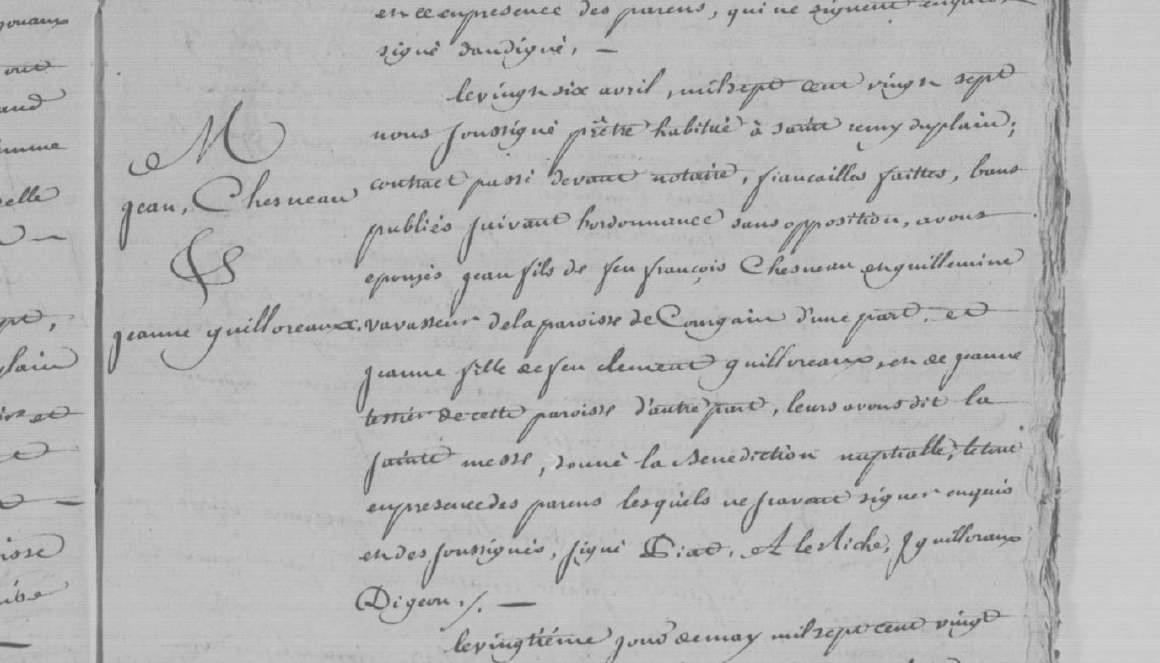 en ce en presence des parens, qui ne signent enquis
signé dandigné, —
le vingt six avril, mil sept cent vingt sept
nous soussigné prêtre habitué à saint remy du plain;
contract passé devant notaire, fiancailles faittes, bans
publiés suivant l'ordonnance sans opposition, avons
epousés jean fils de feu françois Chesneau et guillemine
vavasseur de la paroisse de Courgain d'une part, et
jeanne fille de feu clement guilloreaux, et de jeanne
tessier de cette paroisse d'autre part, leurs avons dit la
sainte messe, donné la Benediction nuptialle, le tout
en presence des parens lesquels ne scavent signer enquis
et des soussignés, signé Piat, A le Riche, J guilloraux
Digeon ./. —
le vingtiéme jour de may mil sept cent vingt
M
jean, Chesneau
&
jeanne guilloreaux.
out
and
elle
plain
isse